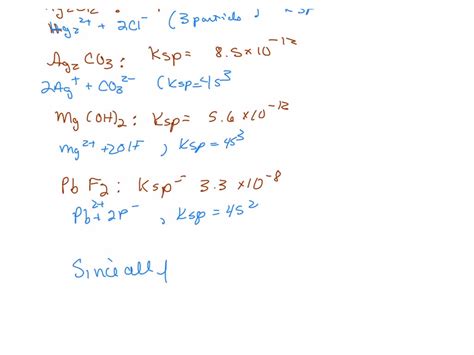 Hg₂²⁺ + 2Cl⁻ (3 particle , Ksp
Ag₂CO₃ : Ksp = 8.5×10⁻¹²
2Ag⁺ + CO₃²⁻ (Ksp=4s³
Mg(OH)₂ : Ksp = 5.6×10⁻¹²
Mg²⁺ + 2OH⁻ , Ksp = 4s³
PbF₂ : Ksp⁻ 3.3×10⁻⁸
Pb²⁺+2F⁻ , Ksp = 4s²
Since all